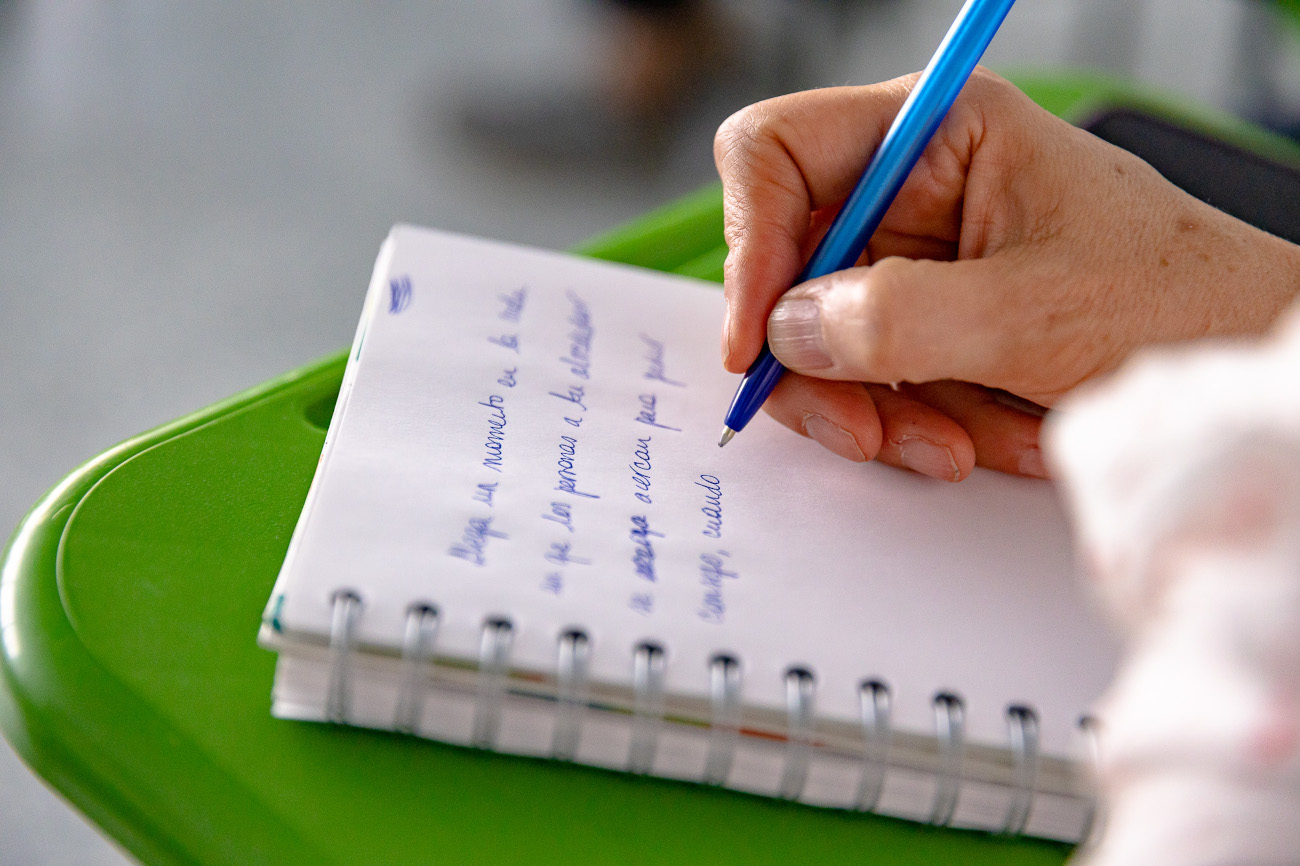 Llega un momento en la vida
en que las personas a tu alrededor
se acercan para
contigo, cuando